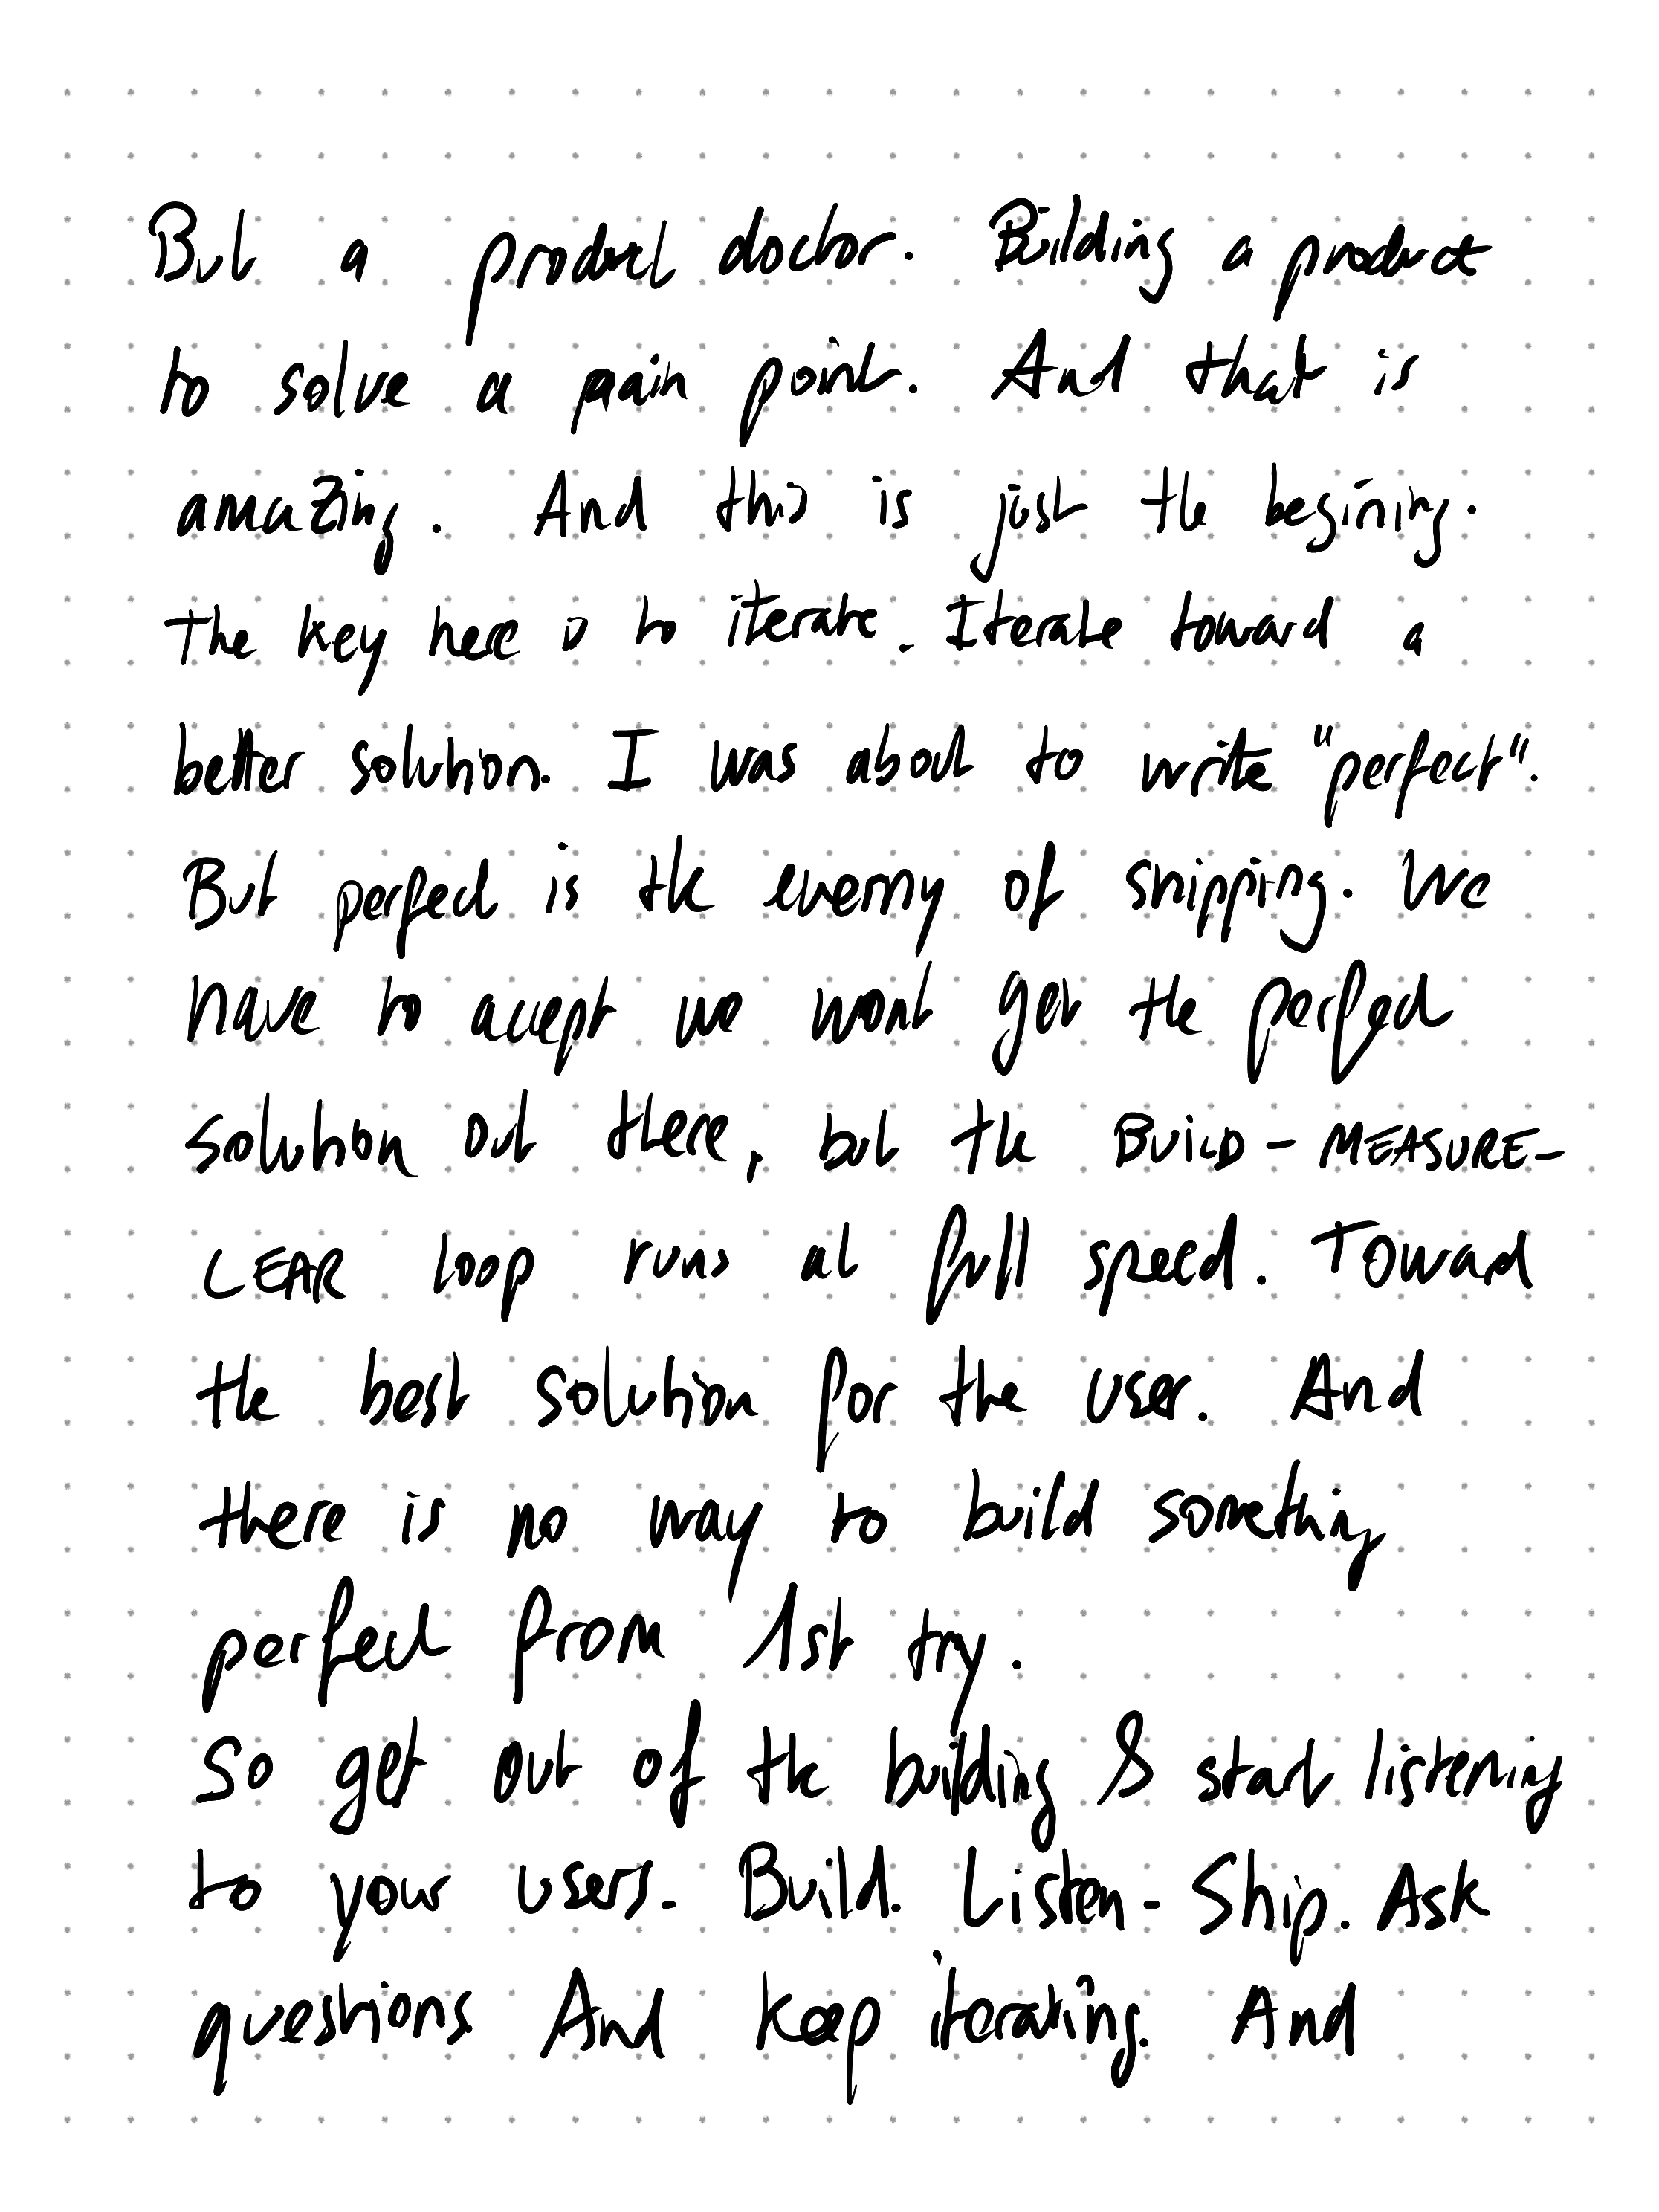 But a product doctor. Building a product
to solve a pain point. And that is
amazing. And this is just the begining.
The key here is to iterate. Iterate toward a
better solution. I was about to write "perfect".
But perfect is the enemy of shipping. We
have to accept we wont get the perfect
solution out there, but the BUILD - MEASURE -
LEAR loop runs at full speed. Toward
the best solution for the user. And
there is no way to build something
perfect from 1st try.
So get out of the building & start listening
to your users. Build. Listen. Ship. Ask
questions And keep iterating. And